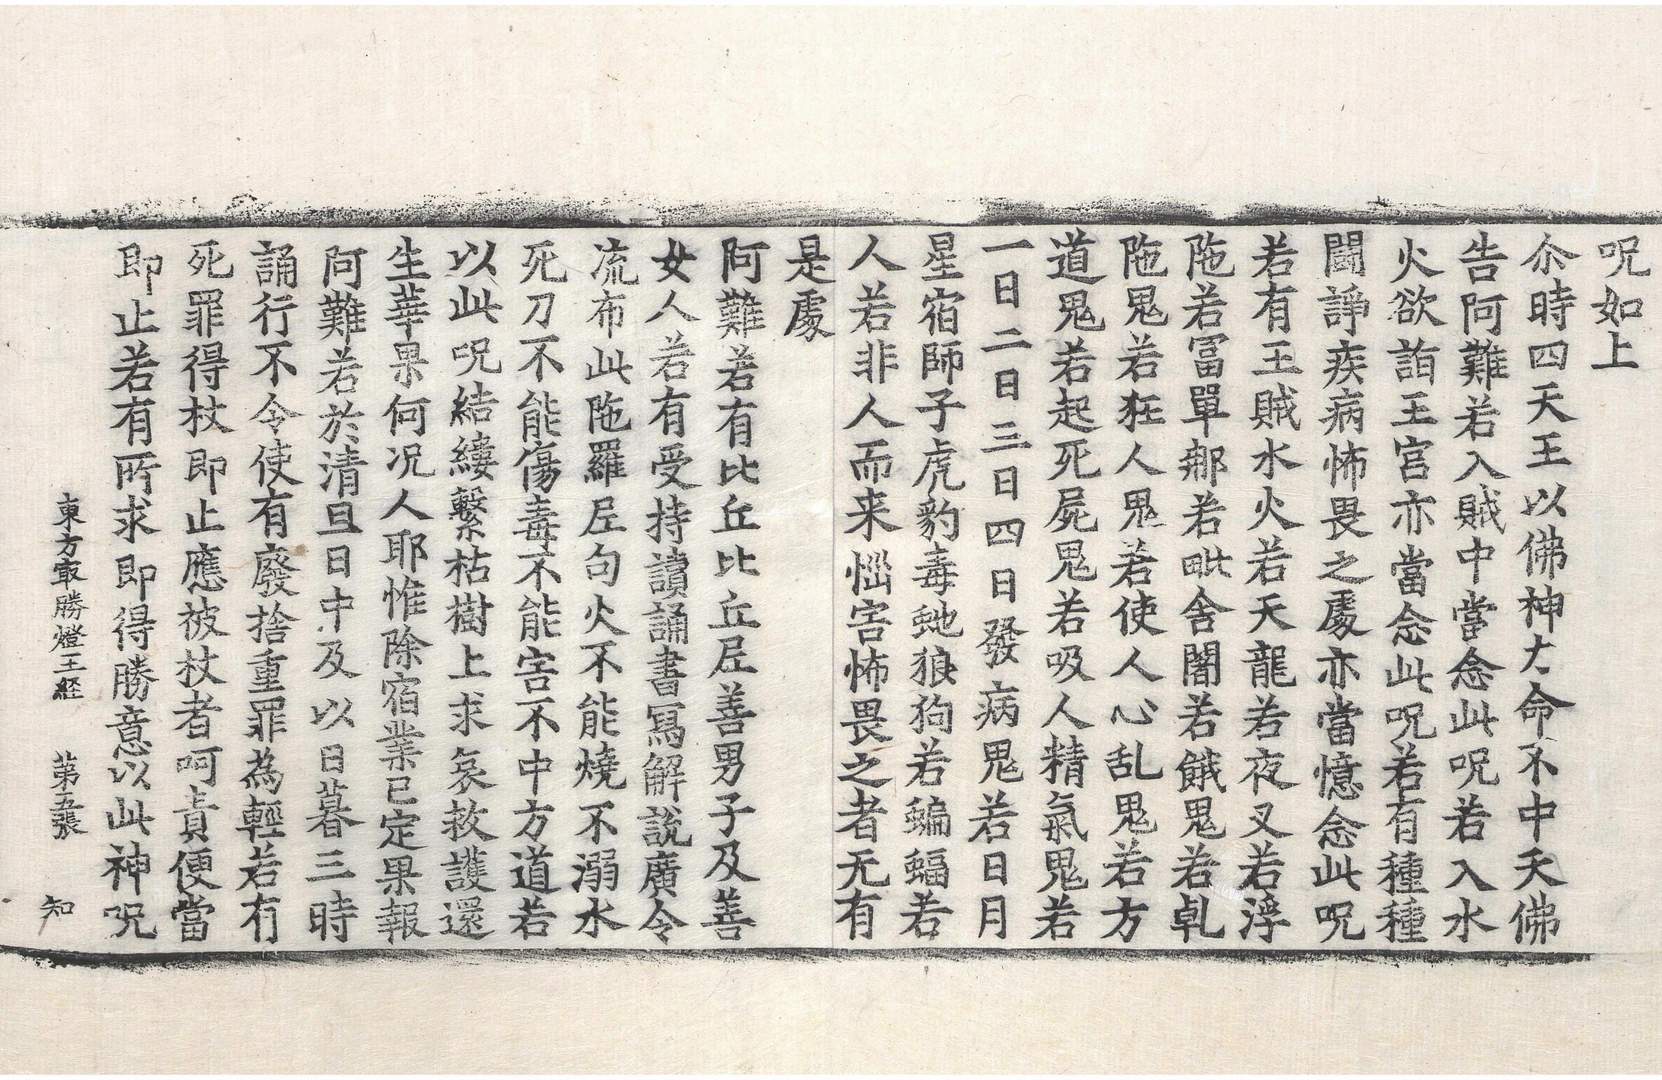 呪如上
尒時四天王以佛神力命不中夭佛
告阿難若入賊中當念此呪若入水
火欲詣王宮亦當念此呪若有種種
鬪諍疾病怖畏之處亦當憶念此呪
若有王賊水火若天龍若夜叉若浮
陁若冨單那若毗舍闍若餓鬼若乹
陁鬼若狂人鬼若使人心乱鬼若方
道鬼若起死屍鬼若吸人精氣鬼若
一日二日三日四日發病鬼若日月
星宿師子虎豹毒虵狼狗若蝙蝠若
人若非人而来惱害怖畏之者无有
是處
阿難若有比丘比丘尼善男子及善
女人若有受持讀誦書冩解說廣令
流布此陁羅尼句火不能燒不溺水
死刀不能傷毒不能害不中方道若
以此呪結縷繫枯樹上求哀救護還
生華果何况人耶惟除宿業已定果報
阿難若於清旦日中及以日暮三時
誦行不令使有廢捨重罪為輕若有
死罪得杖即止應被杖者呵責便當
即止若有所求即得勝意以此神呪
東方㝡勝燈王経 第五張 知